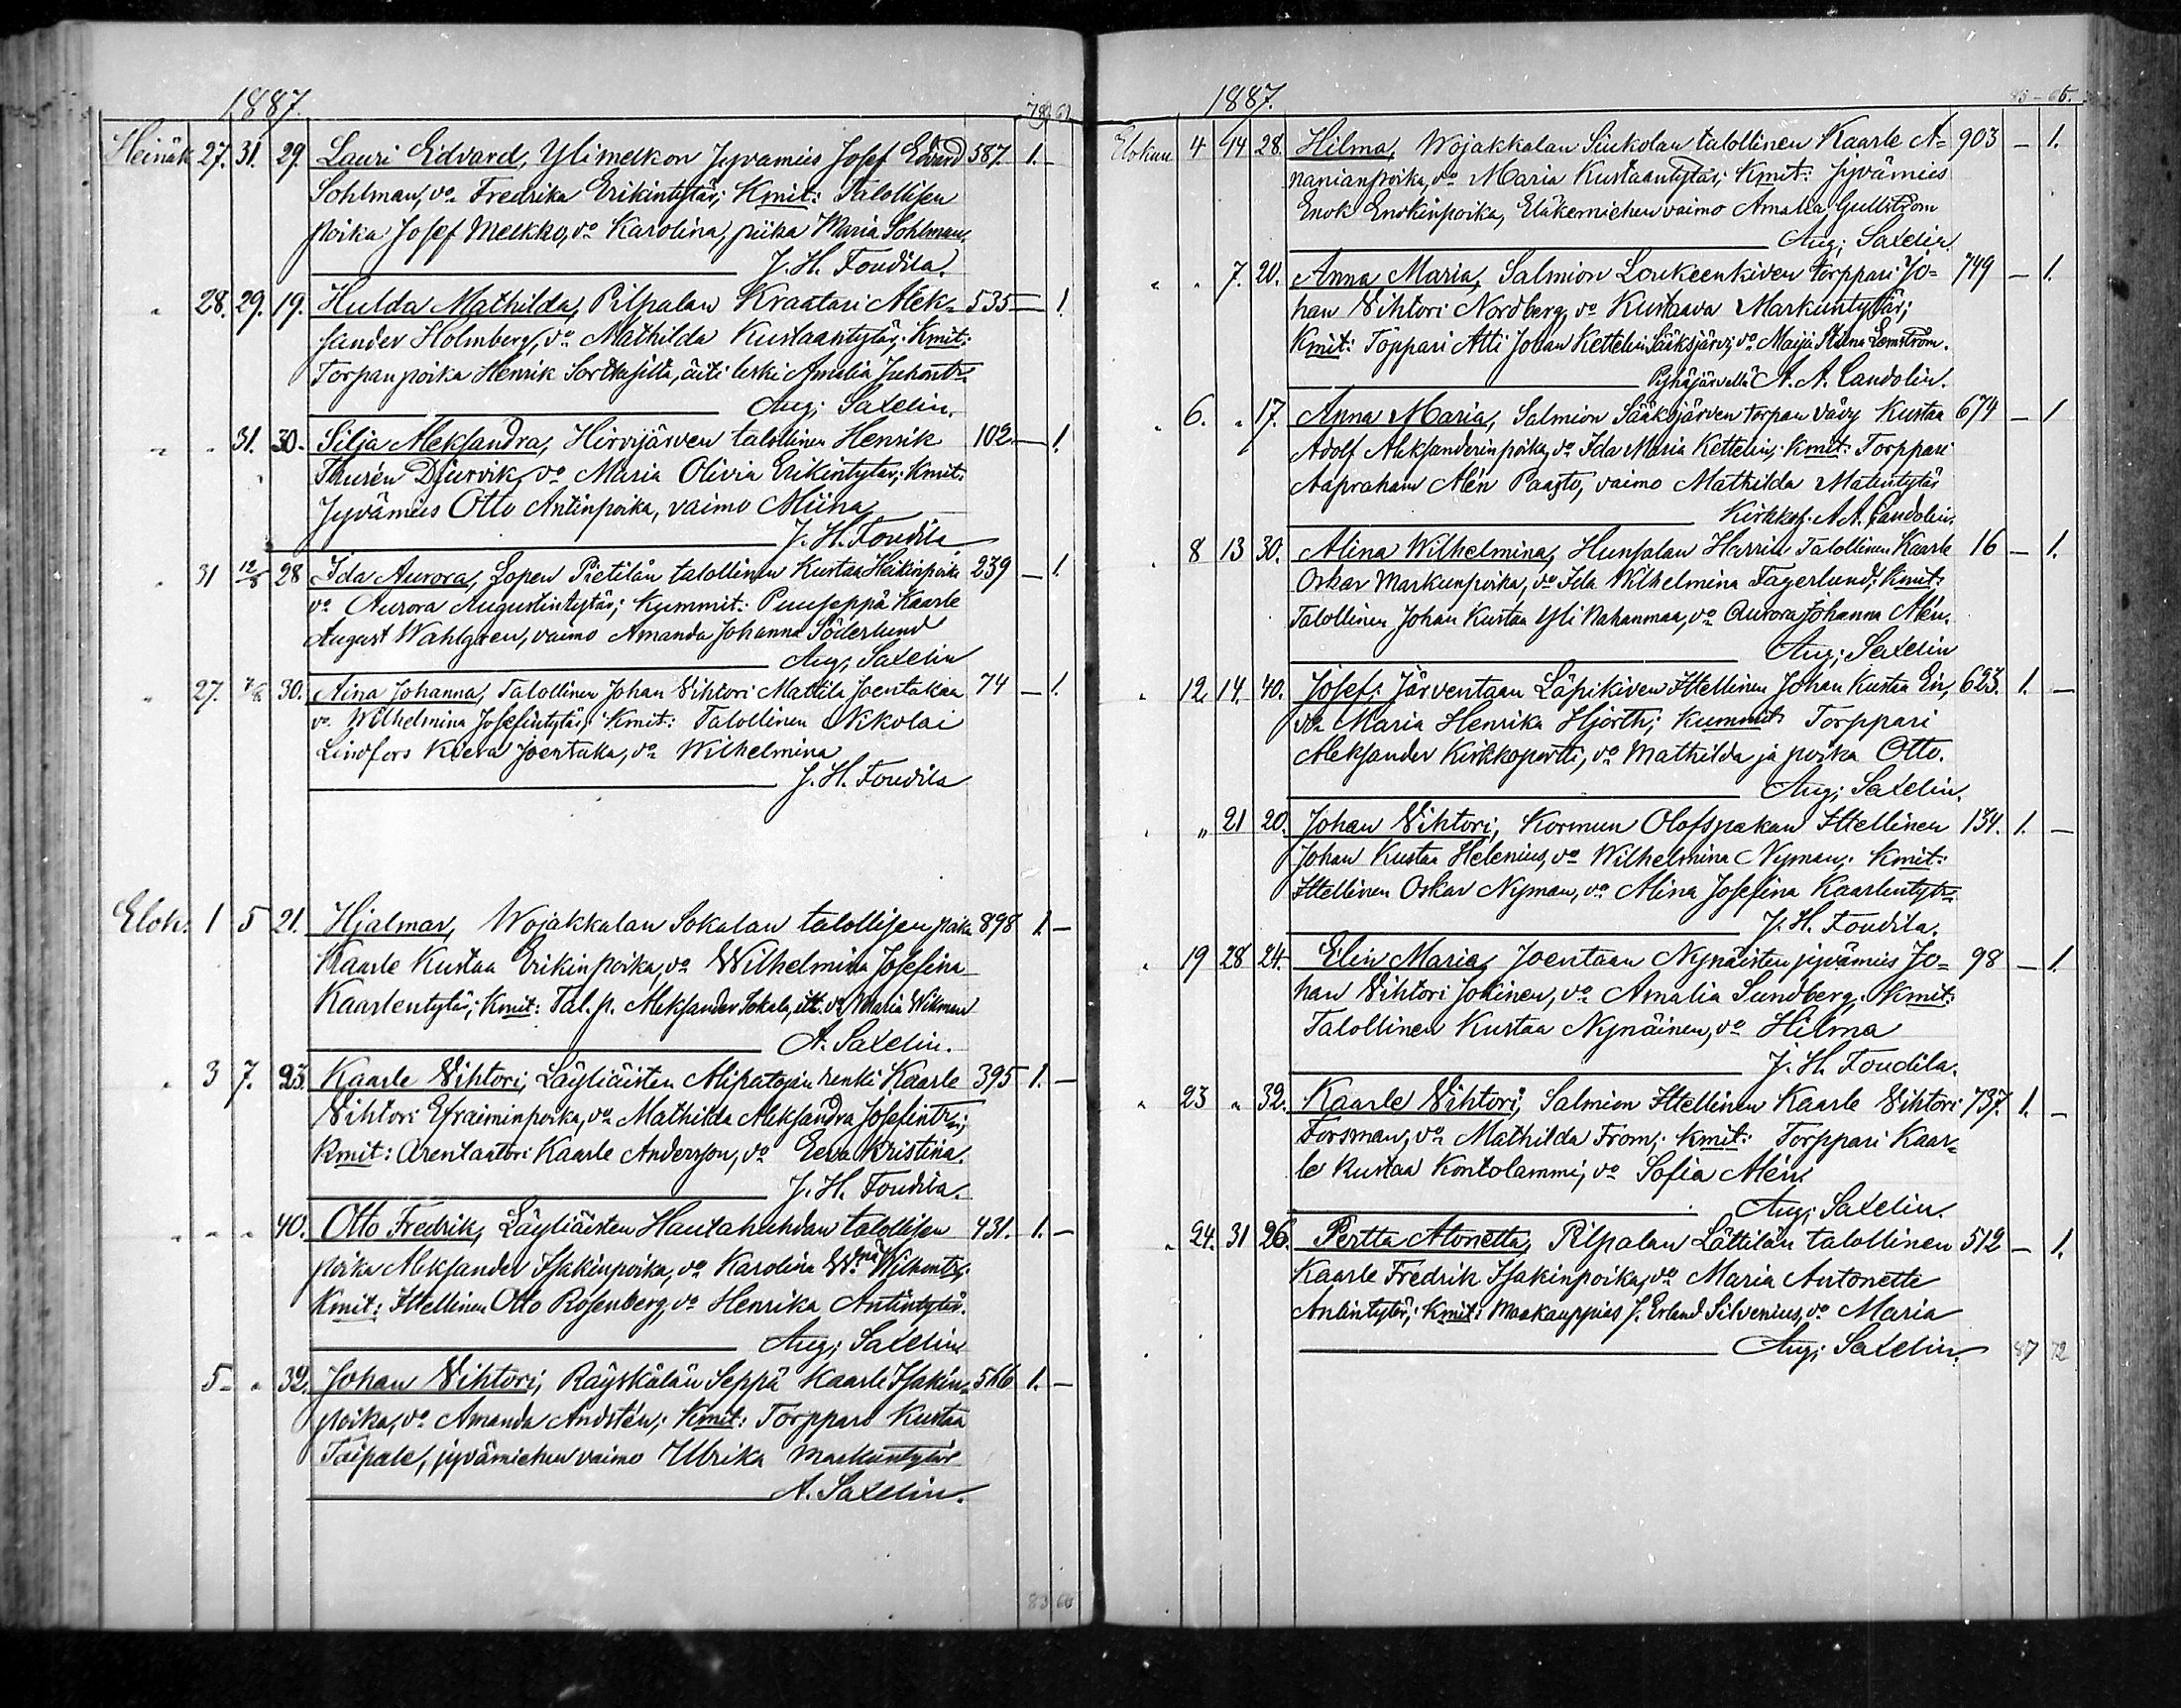 1887.
Heinäk 27. 31. 29. Lauri Edvard, Ylimelkon Jyvämies Josef Edvard 587. 1. —
Sohlman, vo. Fredrika Erikintytär; Kmit: Talollisen
poika Josef Melkko, vo Karolina, piika Maria Sohlman.
J. H. Foudila.
" 28. 29. 19. Hulda Mathilda, Pilpalan Kraatari Alek- 535 — 1.
sander Holmberg, vo. Mathilda Kustaantytär; Kmit:
Torpan poika Henrik Sorttusilta, äiti leski Amalia
Aug; Saxelin.
" " 31. 30. Silja Aleksandra, Hirvijärven talollinen Henrik 102. — 1.
Thurén Djurvik, vo Maria Olivia Erikintytär; Kmit:
Jyvämies Otto Antinpoika, vaimo Miina
J. H. Foudila
" 31 12/8 28 Ida Aurora, Lopen Pietilän talollinen Kustaa Heikinpoika 239 — 1.
vo Aurora Augustintytär; Kummit: Puuseppä Kaarle
August Wahlgren, vaimo Amanda Johanna Söderlund
Aug; Saxelin
" 27. 7/8 30. Aina Johanna, Talollinen Johan Vihtori Mattila Joentakaa 74 — 1.
vo. Wilhelmina Josefintytär; Kmit: Talollinen Nikolai
Lindfors Joentaka, vo. Wilhelmina
J. H. Foudila
Elok. 1 5 21. Hjalmar, Wojakkalan Sokalan talollisen poika 898 1. —
Kaarle Kustaa Erikinpoika, vo Wilhelmina Josefina
Kaarlentytär; Kmit: Tal. p. Aleksander Sokala, itt. vo Maria Wikman
A. Saxelin.
" 3 7. 23. Kaarle Vihtori; Läyliäisten Alipatojan renki Kaarle 395 1. —
Vihtori Efraiminpoika, vo. Mathilda Aleksandra Josefintr;
Kmit: Arentaattori Kaarle Andersson, vo Eeva Kristina.
J. H. Foudila.
" " " 40. Otto Fredrik, Läyliäisten Hautahuhdan talollisen 431. 1. —
poika Aleksander Isakinpoika, vo Karolina
Kmit: Ittellinen Otto Rosenberg, vo Henrika Antintytär.
Aug; Saxelin
5 — " 32. Johan Vihtori; Räyskälän Seppä Kaarle Isakin- 566 1. —
poika, vo Amanda Andstén; Kmit: Torppari Kustaa
Taipale, jyvämiehen vaimo Ulrika Markuntytär
A. Saxelin.
83 66
1887. 83 — 66.
Elokuu 4 14 28. Hilma, Wojakkalan Siukolan talollinen Kaarle A- 903 — 1.
nanianpoika, vo. Maria Kustaantytär; Kmit: Jyvämies
Enok Enokinpoika, Eläkemiehen vaimo Amalia Gullström
Aug; Saxelin
" " 7. 20. Anna Maria, Salmion Loukeenkiven torppari Jo- 749 — 1.
han Vihtori Nordberg, vo Kustaava Markuntytär;
Kmit: Torppari Atti Johan Kettelin Sääksjärvi, vo Maija Stina
Pyhäjärvellä A. A. Candolin.
" 6. " 17. Anna Maria, Salmion Sääksjärven torpan vävy Kustaa 674 — 1
Adolf Aleksanderinpoika, vo Ida Maria Kettelin; Kmit: Torppari
Aapraham Alén Paasto, vaimo Mathilda Matintytär
Kirkkoh. A. A. Candolin.
" 8 13 30. Alina Wilhelmina, Hunsalan Harrin Talollinen Kaarle 16 — 1.
Oskar Markunpoika, vo Ida Wilhelmina Fagerlund; Kmit:
Talollinen Johan Kustaa Yli Nahanmaa, vo Aurora Johanna Alén.
Aug; Saxelin
" 12 14. 40. Josef; Järventaan Läpikiven Ittellinen Johan Kustaa 623. 1. —
vo. Maria Henrika Hjorth; Kummit: Torppari
Aleksander Kirkkoportti, vo Mathilda ja poika Otto.
Aug; Saxelin.
" " 21 20. Johan Vihtori; Kormun Olofspakan Ittellinen 134. 1. —
Johan Kustaa Helenius, vo Wilhelmina Nyman; Kmit:
Ittellinen Oskar Nyman, vo Alina Josefina Kaarlentytr
J. H. Foudila.
" 19 28 24. Elin Maria, Joentaan Nynäisten jyvämies Jo- 98 — 1.
han Vihtori Jokinen, vo Amalia Sundberg; Kmit:
Talollinen Kustaa Nynäinen, vo Hilma
J. H. Foudila.
" 23 " 32. Kaarle Vihtori; Salmion Ittellinen Kaarle Vihtori 737. 1. —
Forsman, vo Mathilda From; Kmit: Torppari Kaar-
le Kustaa Kontolammi, vo Sofia Alén
Aug; Saxelin.
" 24. 31 26. Pertta Atonetta, Pilpalan Lättilän talollinen 512 — 1.
Kaarle Fredrik Isakinpoika, vo Maria Antonette
Antintytär; Kmit: Maakauppias J. Erland Silvenius, vo Maria
Aug; Saxelin. 87 72